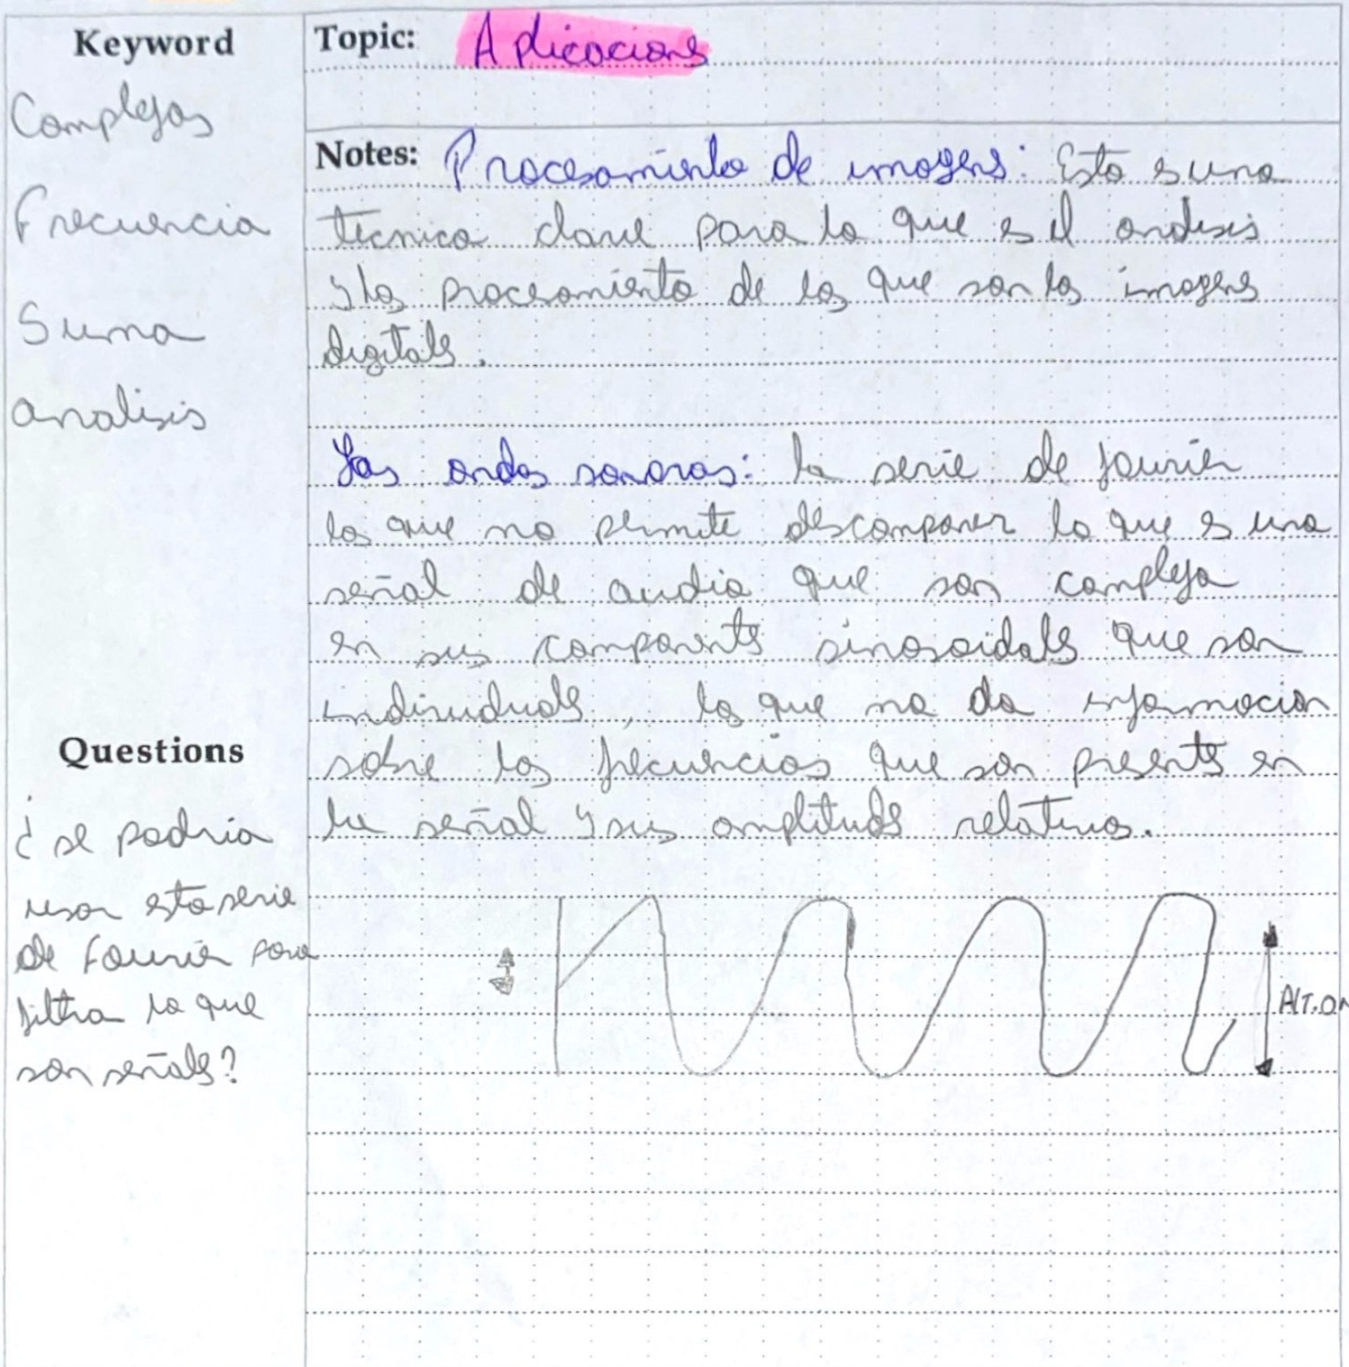 Keyword
Complejas
Frecuencia
Suma
analisis
Questions
¿se podria
usar esta serie
de Fourier para
filtra lo que
son señals?
Topic: Aplicacions
Notes: Procesamiento de imagens: Esta s una
tecnica clave para lo que es el analisis
y los procesamiento de los que son las imagens
digitals.
Las ondas sonoras: la serie de fourier
los que no permite descomponer lo que s una
señal de audio que son compleja
en sus components sinosoidals que son
individuals, los que no da informacion
sobre las frecuencias que son presents en
la señal y sus amplituds relativas.